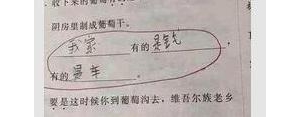 收下来的葡萄
阴房里制成葡萄干。
我家 有的 是钱 ,
有的 是车 。
要是这时候你到葡萄沟去，维吾尔族老乡